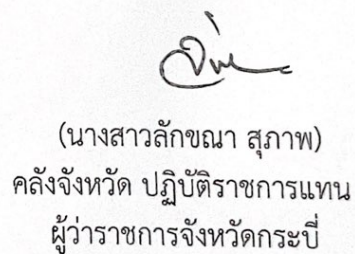 (นางสาวลักขณา สุภาพ)
คลังจังหวัด ปฏิบัติราชการแทน
ผู้ว่าราชการจังหวัดกระบี่